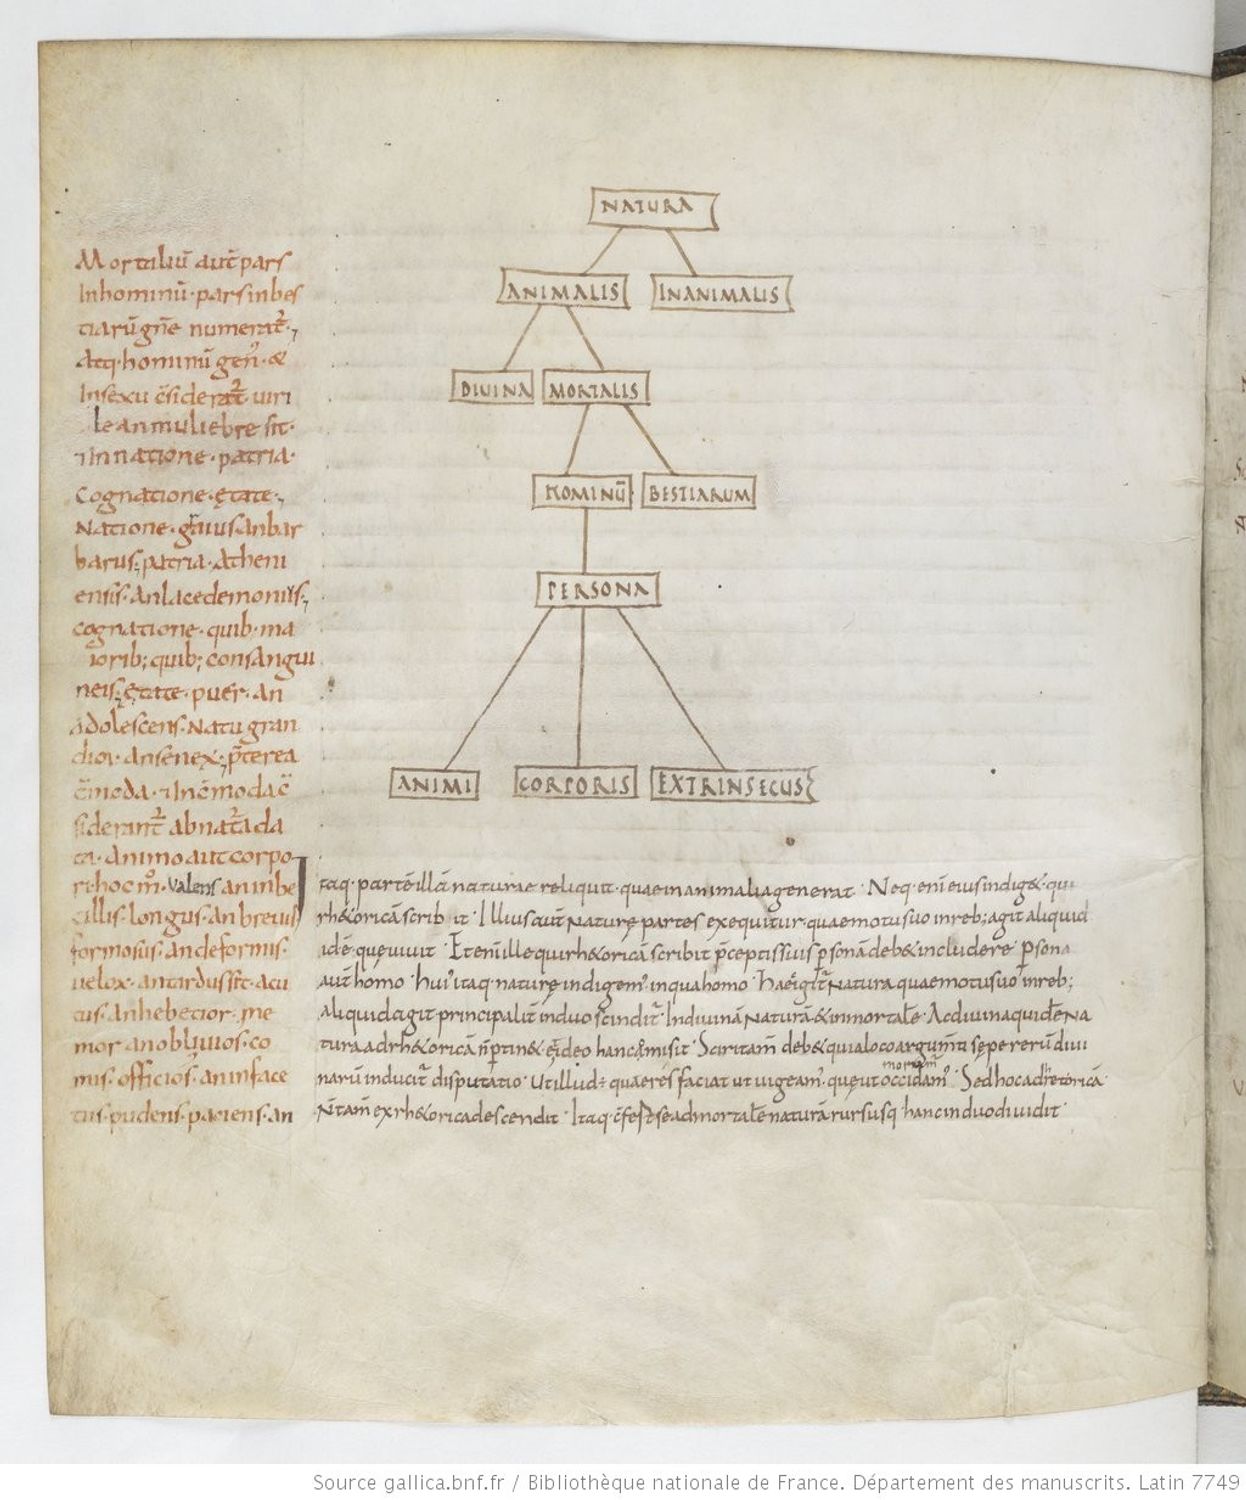 NATURA
ANIMALIS INANIMALIS
DIUINA MORTALIS
HOMINŪ BESTIARUM
PERSONA
ANIMI CORPORIS EXTRINSECUS
Mortaliū aut̄ pars
Inhominū · pars inbes
tiarū gn̄e numerat̄ ·
Atq · hominū gen̄ · &
Insexu c̄siderat̄ · uiri
le an muliebre sit ·
⁊ In natione · patria ·
Cognatione · ętate ·
Natione · graius an bar
barus · patria · Atheni
ensis · An lacedemonius ·
cognatione · quib · ma
iorib; quib; consangui
neis · ętate · puer · an
adolescens · Natu gran
dior · An senex · p̄terea
c̄moda · ⁊ Inc̄moda c̄
siderant̄ ab nat̄a da
ta · Animo aut corpo
ri hoc m̊ · Valens an inbe
cillis · longus · an breuis
formosus · an deformis ·
uelox · an tardus sit · acu
tus · An hebetior · me
mor an obliuios · co
mis · officios · an inface
tus · pudens · patiens · an
Itaq · partē illā naturae reliquit · quae inanimalia generat · Neq · enī eius indig& · qui
rh&oricā scrib it · Illius aut̄ Naturę partes exequitur · quae motu suo inreb; agit aliquid
idē · que uiuit · Etenī ille qui rh&oricā scribit p̄ceptis suis p̱sonā deb& includere · P̱sona
aut̄ homo · Hui' itaq · naturę indigem' inqua homo · Haec igit̄ Natura quae motu suo inreb;
aliquid agit principalit̄ induo scindit̄ · In diuinā Naturā & inmortalē · Ac diuina quidē Na
tura ad rh&oricā n̄ p̱tin& · & ideo hanc amisit · Scri tam̄ deb& quia loco argum̄ti sępe rerū diui
narū inducit̄ disputatio · ut illud · quae res faciat ut uigeam' · que ut occidam' · Sed hoc ad rethoricā
N̄ tam̄ ex rh&orica descendit · Itaq · c̄fest se ad mortalē naturā rursusq hanc induo diuidit ·
Source gallica.bnf.fr / Bibliothèque nationale de France. Département des manuscrits. Latin 7749